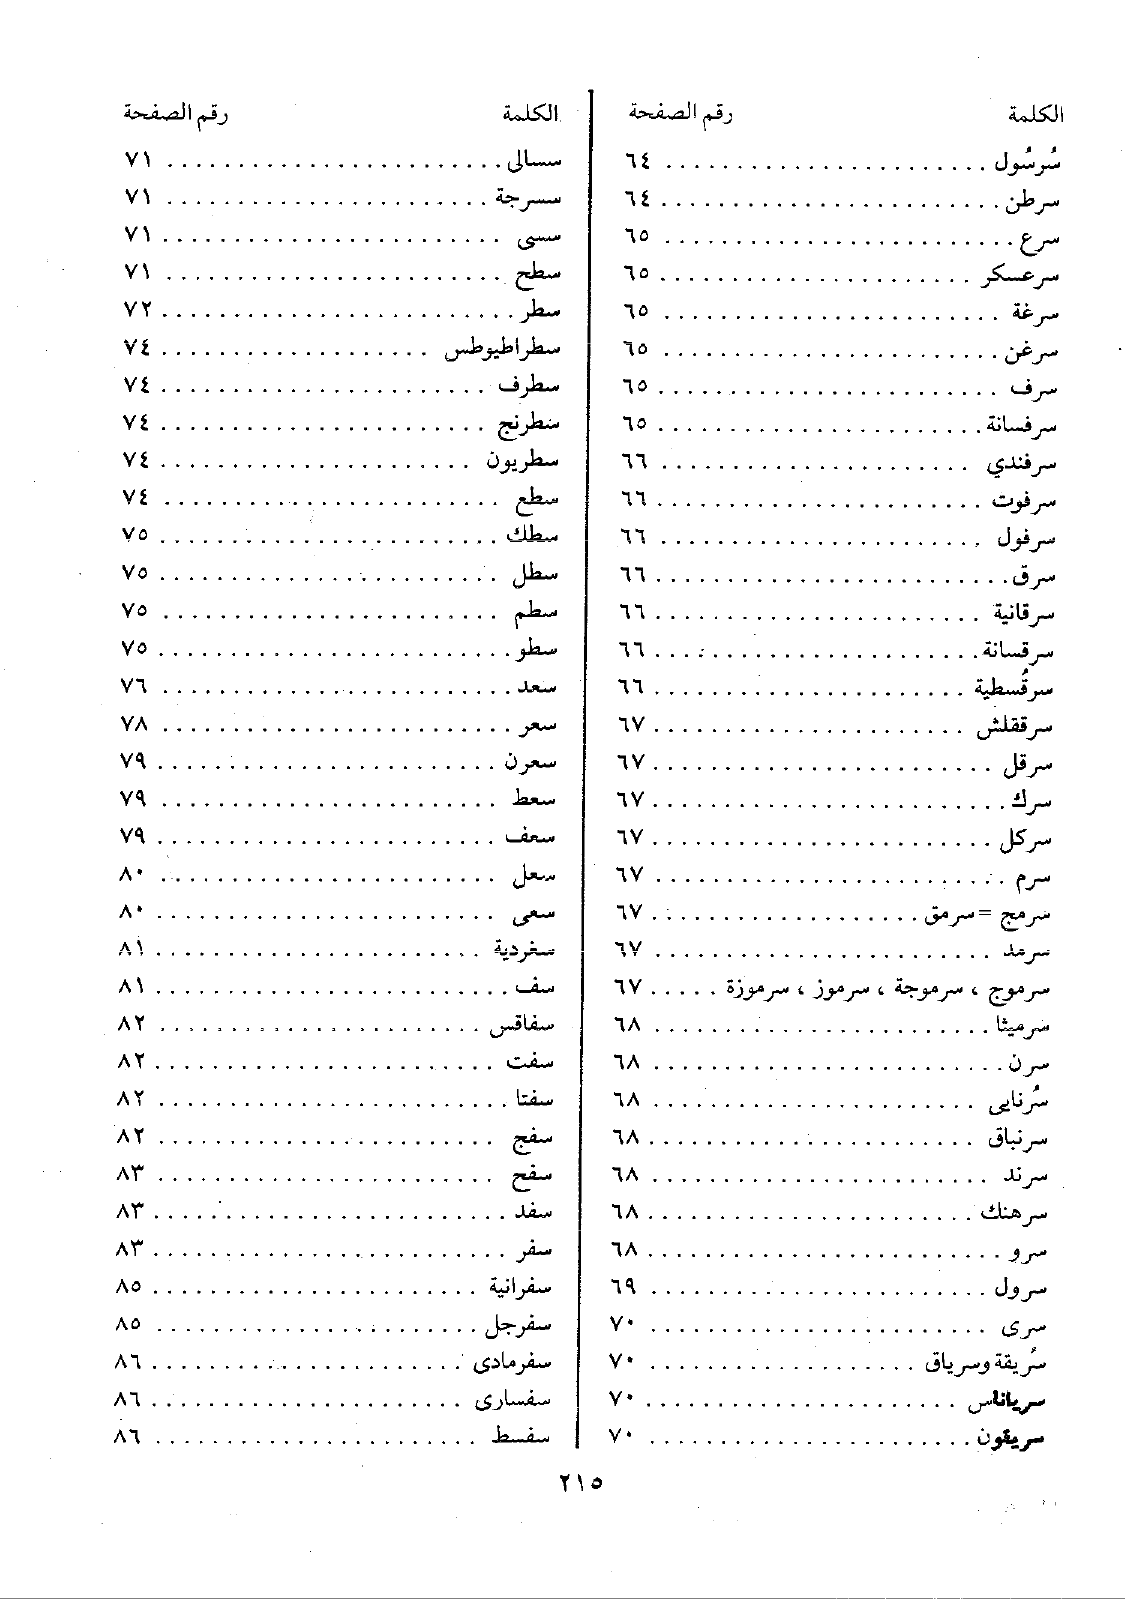 الكلمة رقم الصفحة
سُرسُول ٦٤
سرطن ٦٤
سرع ٦٥
سرعسكر ٦٥
سرغة ٦٥
سرغن ٦٥
سرف ٦٥
سرفسانة ٦٥
سرفندي ٦٦
سرفوت ٦٦
سرفول ٦٦
سرق ٦٦
سرقانية ٦٦
سرقسانة ٦٦
سرقُسطية ٦٦
سرققلش ٦٧
سرقل ٦٧
سرك ٦٧
سركل ٦٧
سرم ٦٧
سرمج = سرمق ٦٧
سرمد ٦٧
سرموج ، سرموجة ، سرموز ، سرموزة ٦٧
سرميثا ٦٨
سرن ٦٨
سُرنايى ٦٨
سرنباق ٦٨
سرند ٦٨
سرهنك ٦٨
سرو ٦٨
سرول ٦٩
سرى ٧٠
سُريقة وسرياق ٧٠
سرياناس ٧٠
سريقون ٧٠
الكلمة رقم الصفحة
سسالى ٧١
سسرجة ٧١
سسى ٧١
سطح ٧١
سطر ٧٢
سطراطيوطس ٧٤
سطرف ٧٤
سطرنج ٧٤
سطريون ٧٤
سطع ٧٤
سطك ٧٥
سطل ٧٥
سطم ٧٥
سطو ٧٥
سعد ٧٦
سعر ٧٨
سعرن ٧٩
سعط ٧٩
سعف ٧٩
سعل ٨٠
سعى ٨٠
سغردية ٨١
سف ٨١
سفاقس ٨٢
سفت ٨٢
سفتا ٨٢
سفج ٨٢
سفح ٨٣
سفد ٨٣
سفر ٨٣
سفرانية ٨٥
سفرجل ٨٥
سفرمادى ٨٦
سفسارى ٨٦
سفسط ٨٦
٢١٥